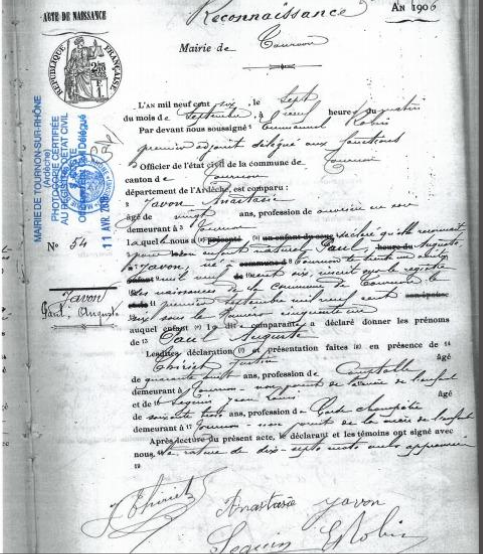 ACTE DE NAISSANCE
Reconnaissance
AN 1906
Mairie de Tournon
RÉPUBLIQUE FRANÇAISE
MAIRIE DE TOURNON-SUR-RHÔNE
(Ardèche)
PHOTOCOPIE CERTIFIÉE
AU REGISTRE D'ETAT CIVIL
Délégué
11 AVR.
L'AN mil neuf cent six, le sept
du mois de septembre à neuf heures du matin
Par devant nous soussigné Emmanuel Robin
premier adjoint délégué aux fonctions
Officier de l'état civil de la commune de Tournon
canton de Tournon
département de l'Ardèche, est comparu :
Javon Anastasie
âgé de vingt ans, profession de ouvrière en soie
demeurant à Tournon
Laquelle nous a présenté un enfant du sexe déclaré qu'elle reconnait
pour son enfant naturel Paul, Auguste
Javon, né à Tournon le trente un août
mil neuf cent six, inscrit sur le registre
des naissances de la commune de Tournon le
premier septembre mil neuf cent
six sous le numéro cinquante un
auquel enfant la dite comparante a déclaré donner les prénoms
de Paul Auguste
Lesdites déclaration et présentation faites en présence de
Thiriet âgé
de quarante huit ans, profession de comptable
demeurant à Tournon - non parent de la mère de l'enfant
et de Seguin Jean Louis âgé
de soixante trois ans, profession de Garde champêtre
demeurant à Tournon - non parent de la mère de l'enfant
Après lecture du présent acte, le déclarant et les témoins ont signé avec
nous. La rature de dix-sept mots
N° 54
Javon
Paul, Auguste
Thiriet
Anastasie Javon
Seguin E Robin